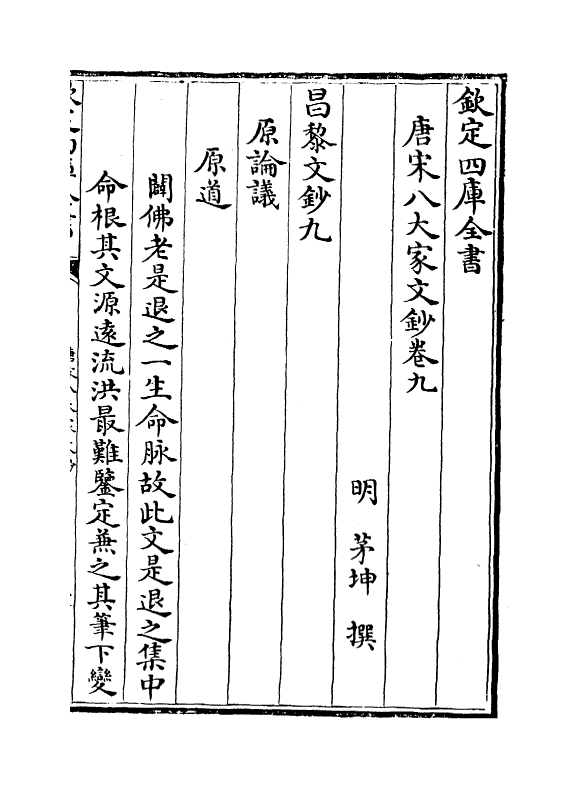 欽定四庫全書
唐宋八大家文鈔卷九
明　茅坤　撰
昌黎文鈔九
原論議
原道
闢佛老是退之一生命脉故此文是退之集中
命根其文源遠流洪最難鑒定兼之其筆下變